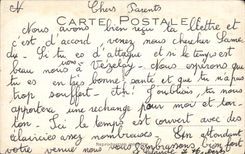 Chers Parents
CARTE POSTALE
Nous avons bien reçu ta lettre et
c'est d'accord, venez nous chercher Same
dy. Si tu es d'attaque et si le temps est
beau nous à Vézelay. Nous espérons que
tu es en très bonne santé et que tu n'as pas
trop souffert. N'oublie pas, tu nous
apportera une rechange pour moi et ton
ton. Ici le temps est couvert avec des
éclaircies assez nombreuses. En attendant
votre venue nous vous embrassons bien fort